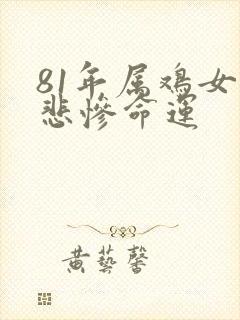 81年属鸡女
悲惨命运
黄藝馨